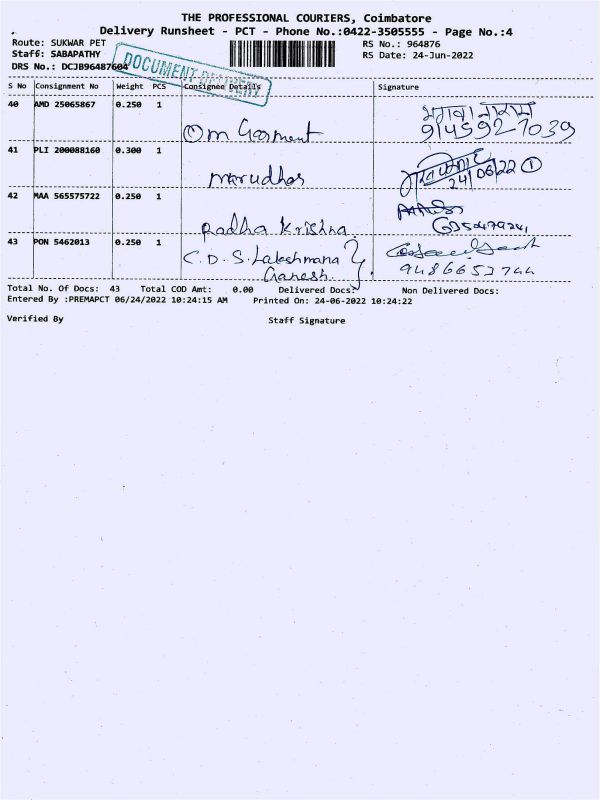 THE PROFESSIONAL COURIERS, Coimbatore
Delivery Runsheet - PCT - Phone No.:0422-3505555 - Page No.:4
Route: SUKWAR PET
RS No.: 964876
Staff: SABAPATHY
RS Date: 24-Jun-2022
DRS No.: DCJB96487604
DOCUMENT DELIVERY
S No Consignment No Weight PCS Consignee Details Signature
40 AMD 25065867 0.250 1
Om Garment
9145927039
41 PLI 200088160 0.300 1
24/06/22 1
Marudhar
42 MAA 565575722 0.250 1
Radha Krishna
43 PON 5462013 0.250 1
C.D.S. Lakshmana
Ganesh
Total No. Of Docs: 43 Total COD Amt: 0.00 Delivered Docs: Non Delivered Docs:
Entered By :PREMAPCT 06/24/2022 10:24:15 AM Printed On: 24-06-2022 10:24:22
Verified By Staff Signature